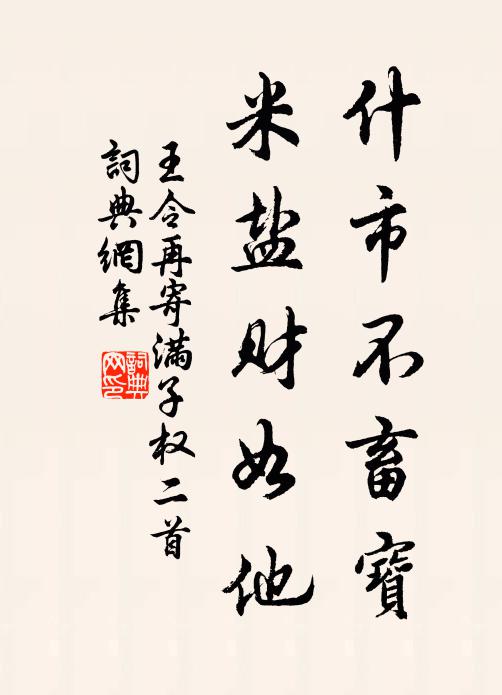 什市不畜寶
米盐财如他
王令再寄滿子权二首
詞典網集
詞典網印